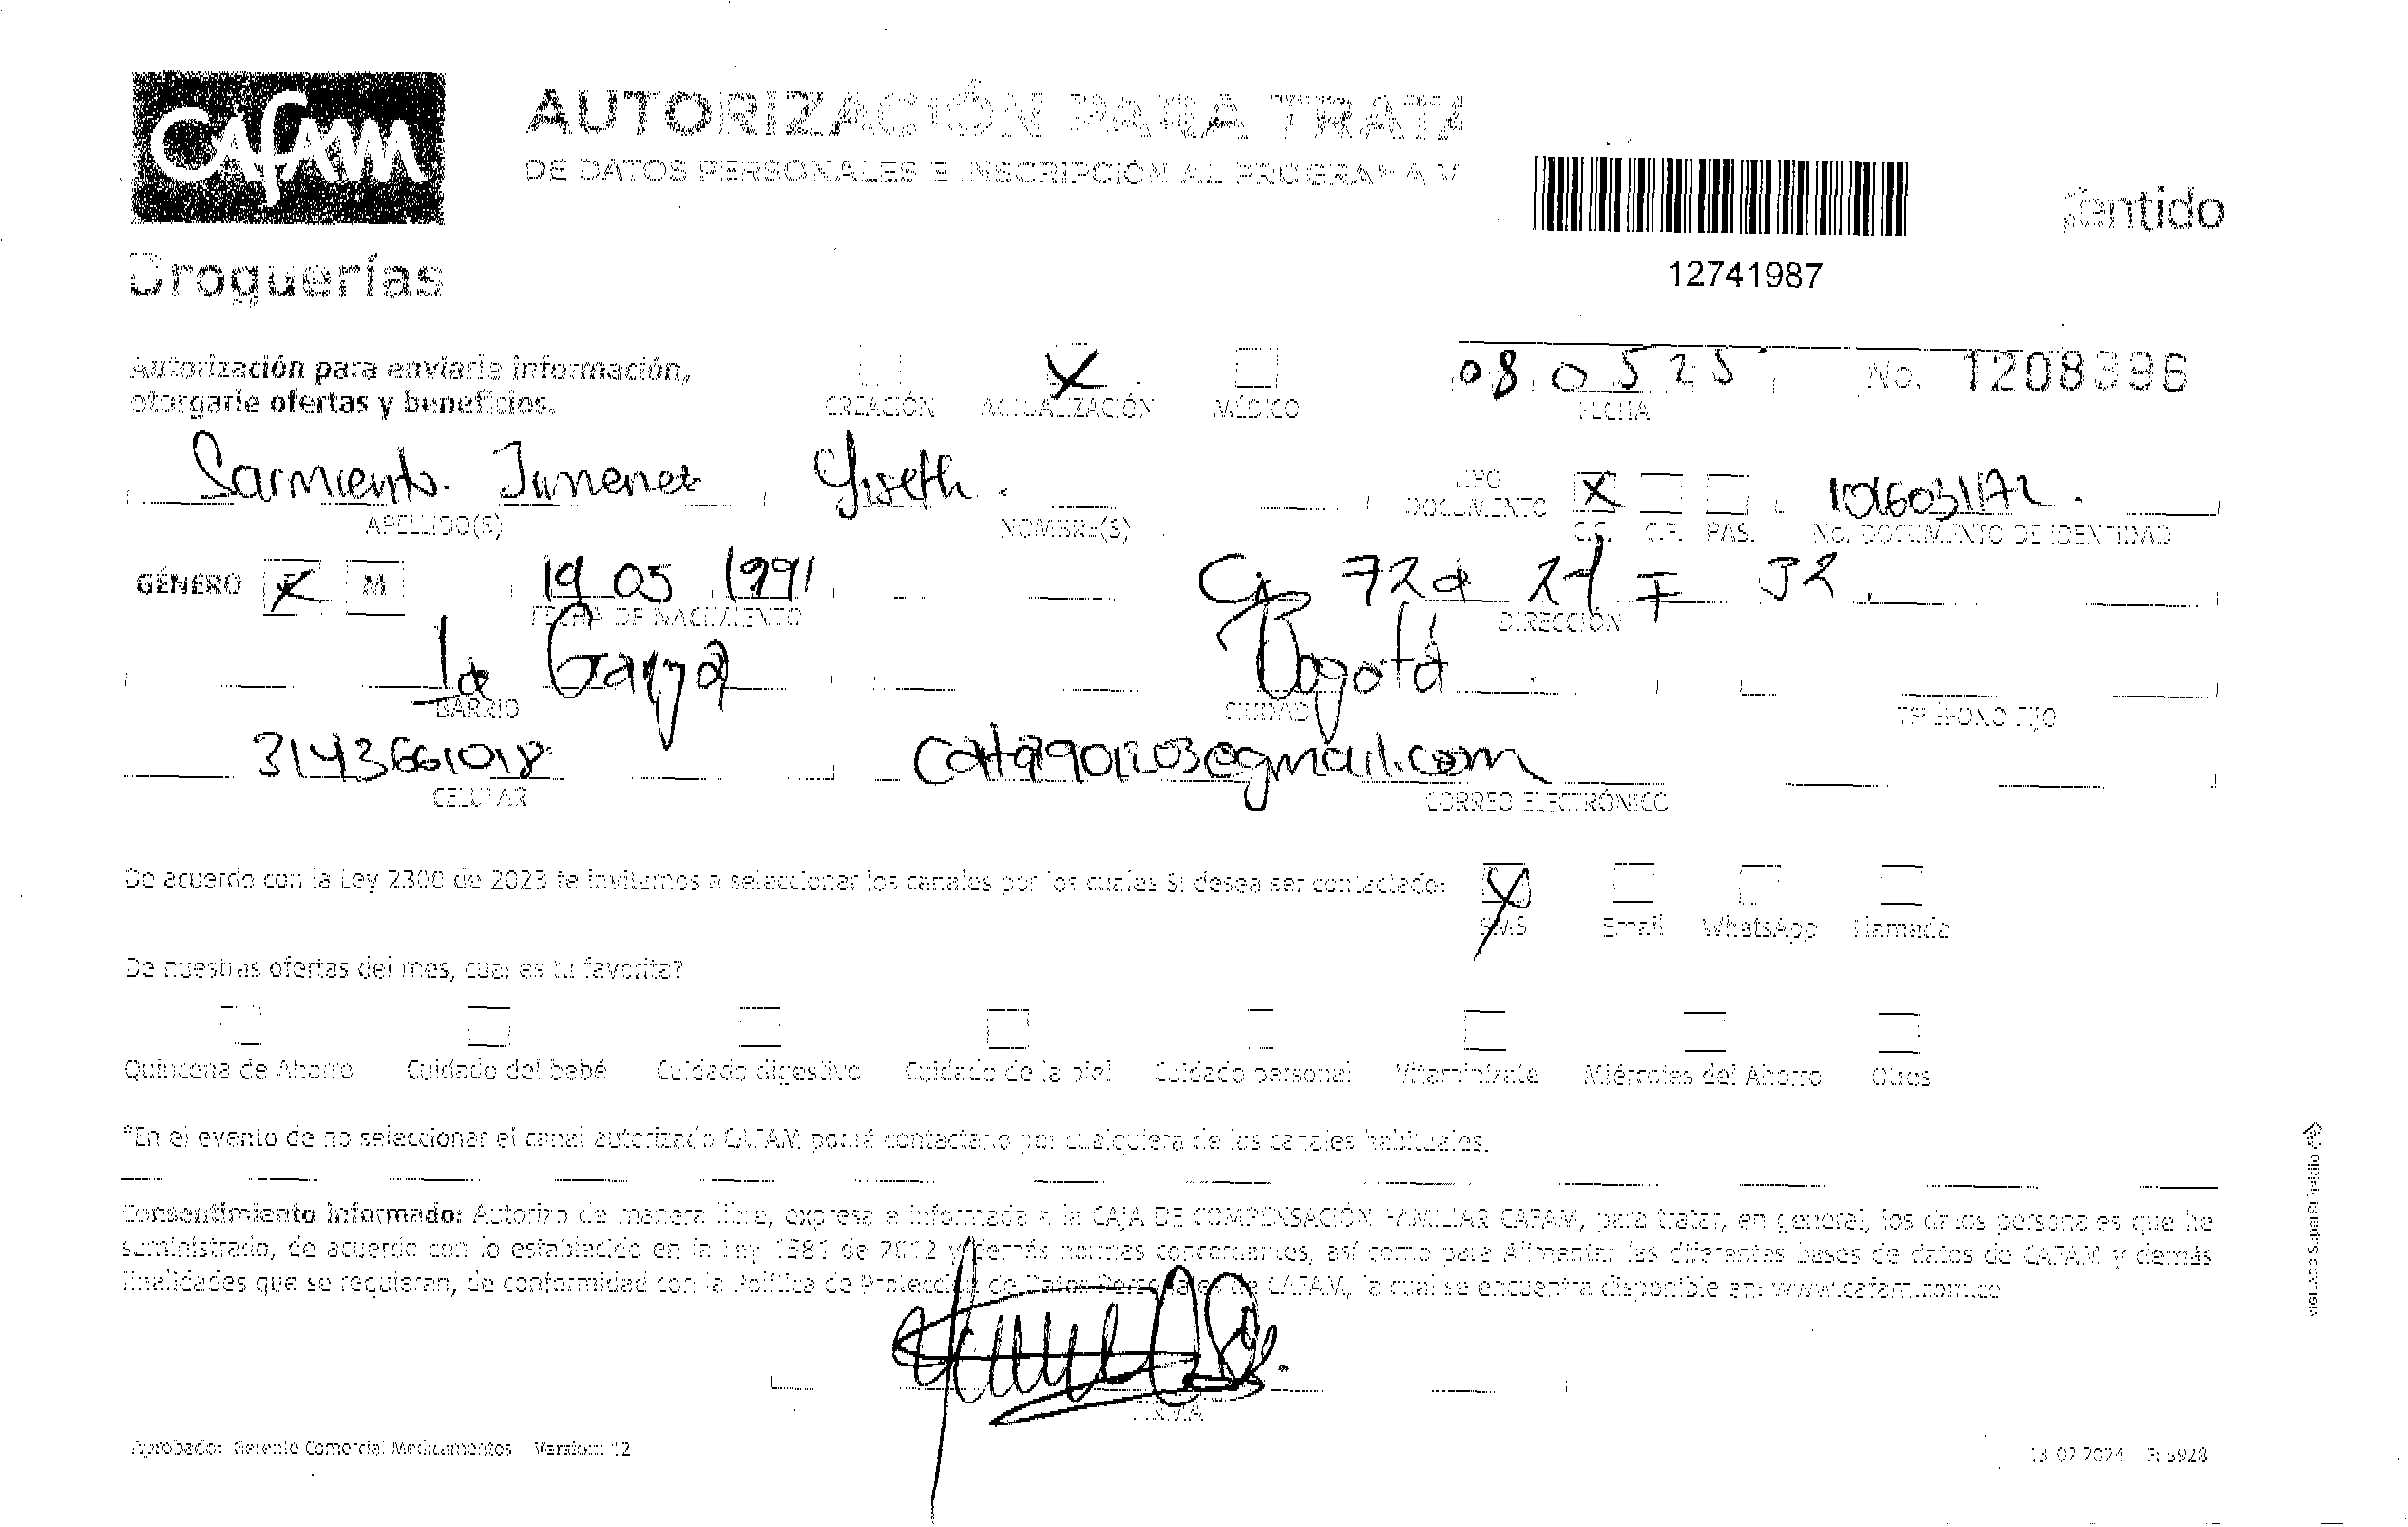 CAFAM
Droguerías
AUTORIZACIÓN PARA TRATA
DE DATOS PERSONALES E INSCRIPCIÓN AL PROGRAMA V
12741987
Sentido
Autorización para enviarle información,
otorgarle ofertas y beneficios.
CREACIÓN ACTUALIZACIÓN MÉDICO
08 05 25 No. 1208396
FECHA
Sarmiento. Jimenez Yiseth.
APELLIDO(S) NOMBRE(S)
TIPO
DOCUMENTO
C.C. C.E. PAS.
1016031172.
No. DOCUMENTO DE IDENTIDAD
GÉNERO F M 19 05 1991 72a 27 F 32
FECHA DE NACIMIENTO DIRECCIÓN
la Bogotá
BARRIO CIUDAD TELÉFONO FIJO
3143661018 cata901203@gmail.com
CELULAR CORREO ELECTRÓNICO
De acuerdo con la Ley 2300 de 2023 te invitamos a seleccionar los canales por los cuales SI desea ser contactado:
SMS Email WhatsApp Llamada
De nuestras ofertas del mes, cual es tu favorita?
Quincena de Ahorro Cuidado del bebé Cuidado digestivo Cuidado de la piel Cuidado personal Vitamínizate Miércoles del Ahorro Otros
*En el evento de no seleccionar el canal autorizado CAFAM podrá contactarlo por cualquiera de los canales habituales.
Consentimiento informado: Autorizo de manera libre, expresa e informada a la CAJA DE COMPENSACIÓN FAMILIAR CAFAM, para tratar, en general, los datos personales que he
suministrado, de acuerdo con lo establecido en la Ley 1581 de 2012 y demás normas concordantes, así como para Alimentar las diferentes bases de datos de CAFAM y demás
finalidades que se requieran, de conformidad con la Política de Protección de Datos Personales de CAFAM, la cual se encuentra disponible en: www.cafam.com.co
FIRMA
Aprobado: Gerente Comercial Medicamentos Versión: 12
13 02 2024 R 5928
VIGILADO SuperSubsidio